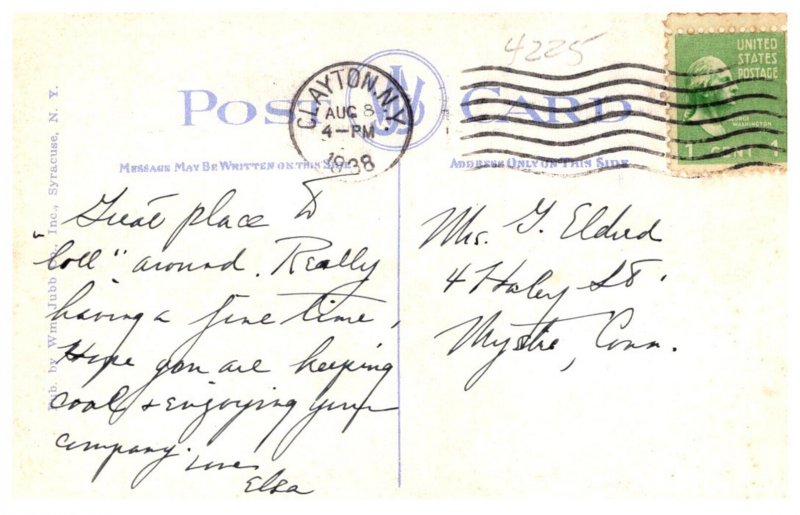 4225
UNITED
STATES
POSTAGE
GEORGE
WASHINGTON
1 CENT 1
CLAYTON, N.Y.
AUG 8
4-PM
1938
POST CARD
MESSAGE MAY BE WRITTEN ON THIS SIDE
ADDRESS ONLY ON THIS SIDE
Pub. by Wm. Jubb Co., Inc., Syracuse, N. Y.
Great place to
"loll" around. Really
having a fine time,
Hope you are keeping
cool & enjoying your
company. Love
Elsa
Mrs. G. Eldred
4 Haley St.
Mystic, Conn.